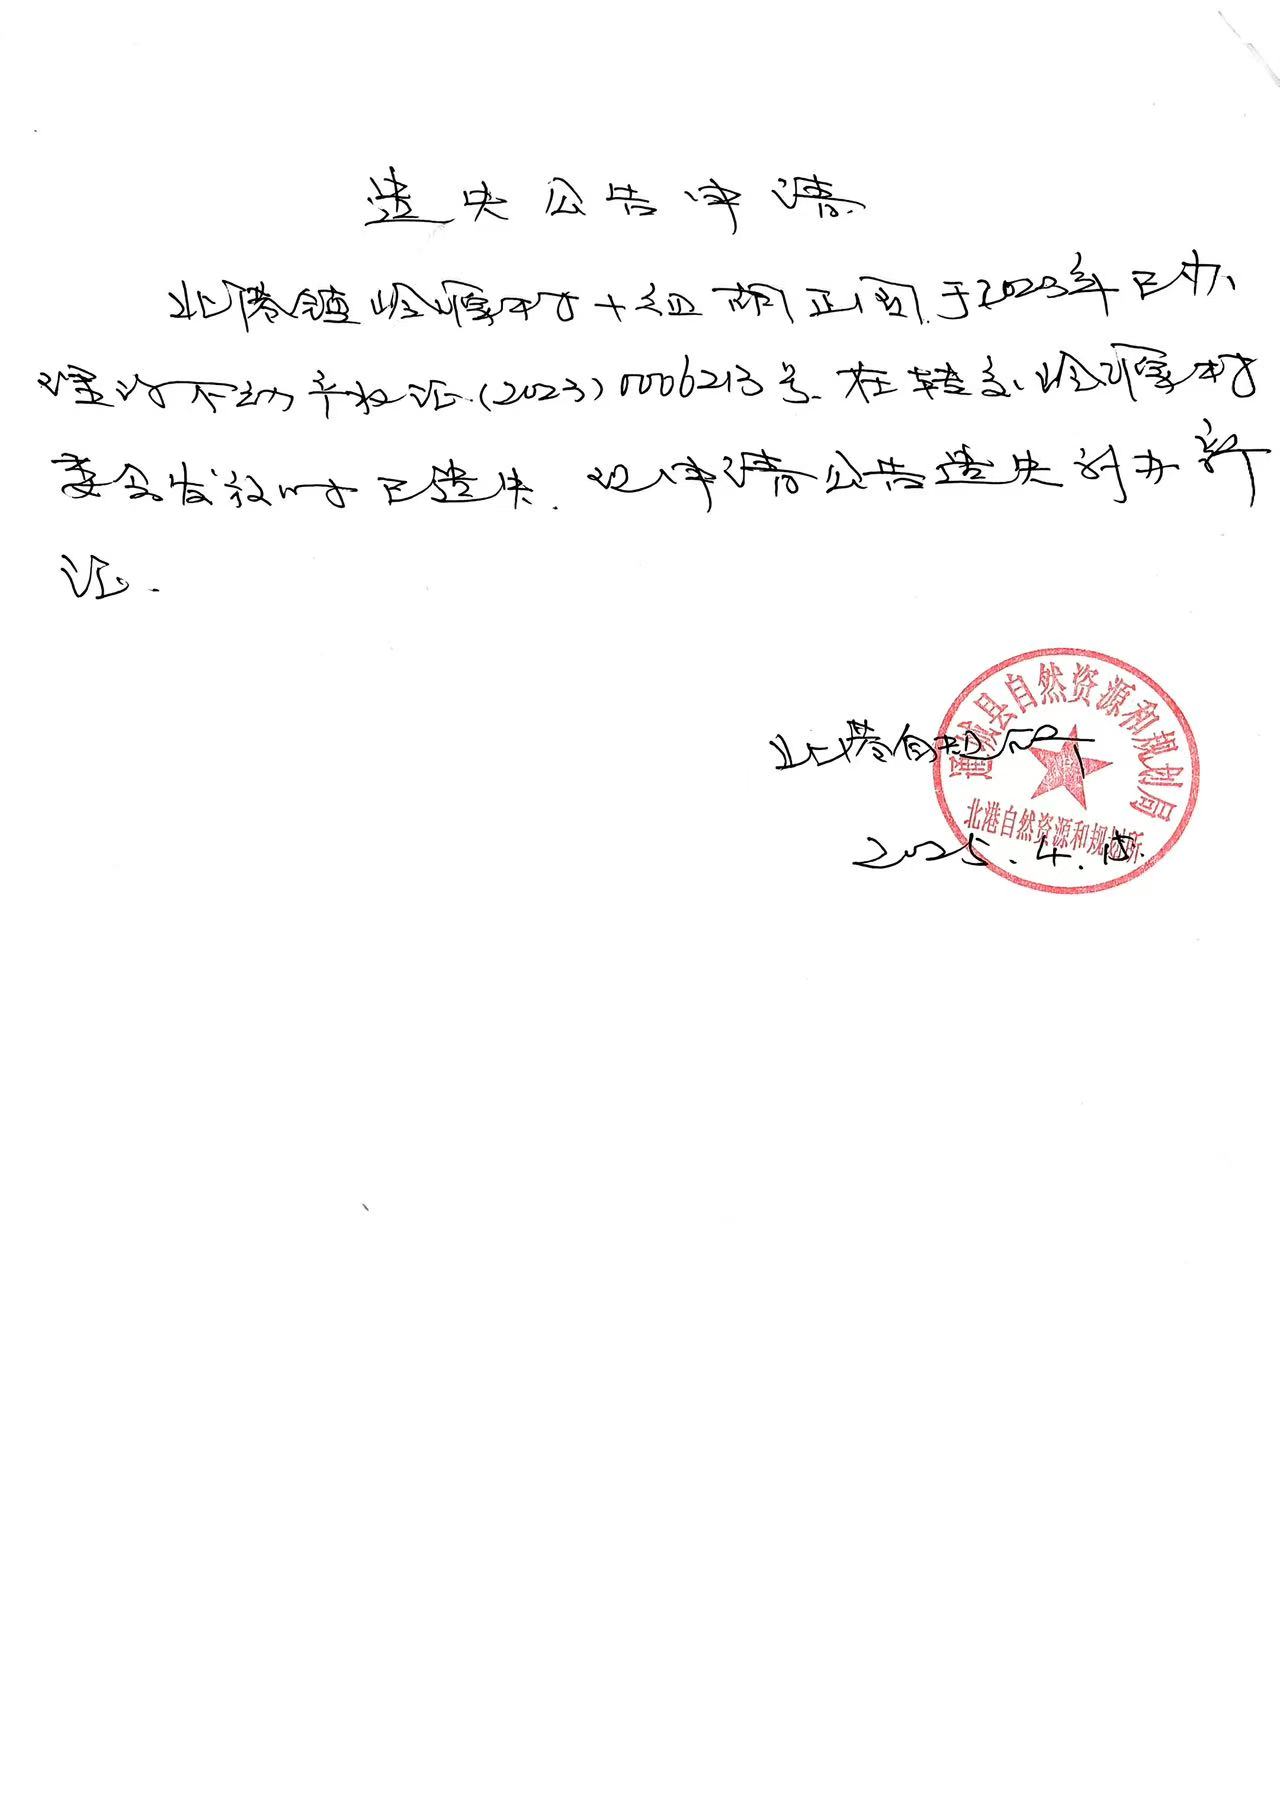 遗失公告申请
北港镇岭源村十组胡正国于2023年已办
理的不动产权证(2023)0006213号.在转交岭源村
委会发放时已遗失.现申请公告遗失补办新
证.
北港自规所
2025.4.15.
通城县自然资源和规划局
北港自然资源和规划所